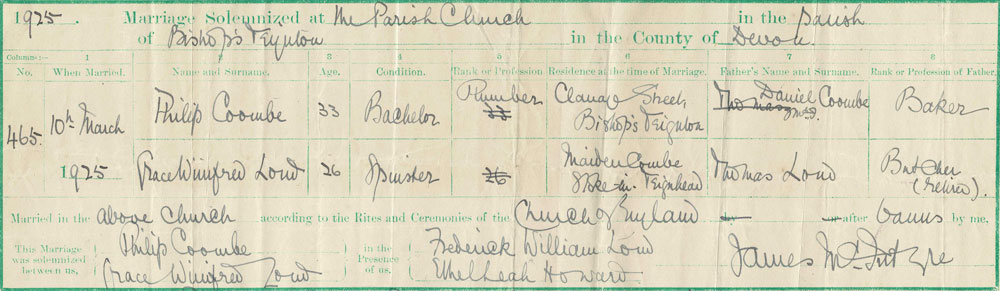 1925. Marriage Solemnized at The Parish Church in the Parish
of Bishop's Teignton in the County of Devon.
Columns:— 1 2 3 4 5 6 7 8
No. When Married. Name and Surname. Age. Condition. Rank or Profession Residence at the time of Marriage. Father's Name and Surname. Rank or Profession of Father.
465. 10th March Philip Coombe 33 Bachelor Plumber 33 Clanage Street, Bishop's Teignton Thomas Daniel Coombe Baker
1925 Grace Winifred Loud 26 Spinster 26 Maiden Combe Stoke-in-Teignhead Thomas Loud Butcher (retired).
Married in the above Church according to the Rites and Ceremonies of the Church of England — or after banns by me,
This Marriage was solemnized between us, Philip Coombe
Grace Winifred Loud
in the Presence of us. Frederick William Loud
Ethel Leah Howard
James McIntyre